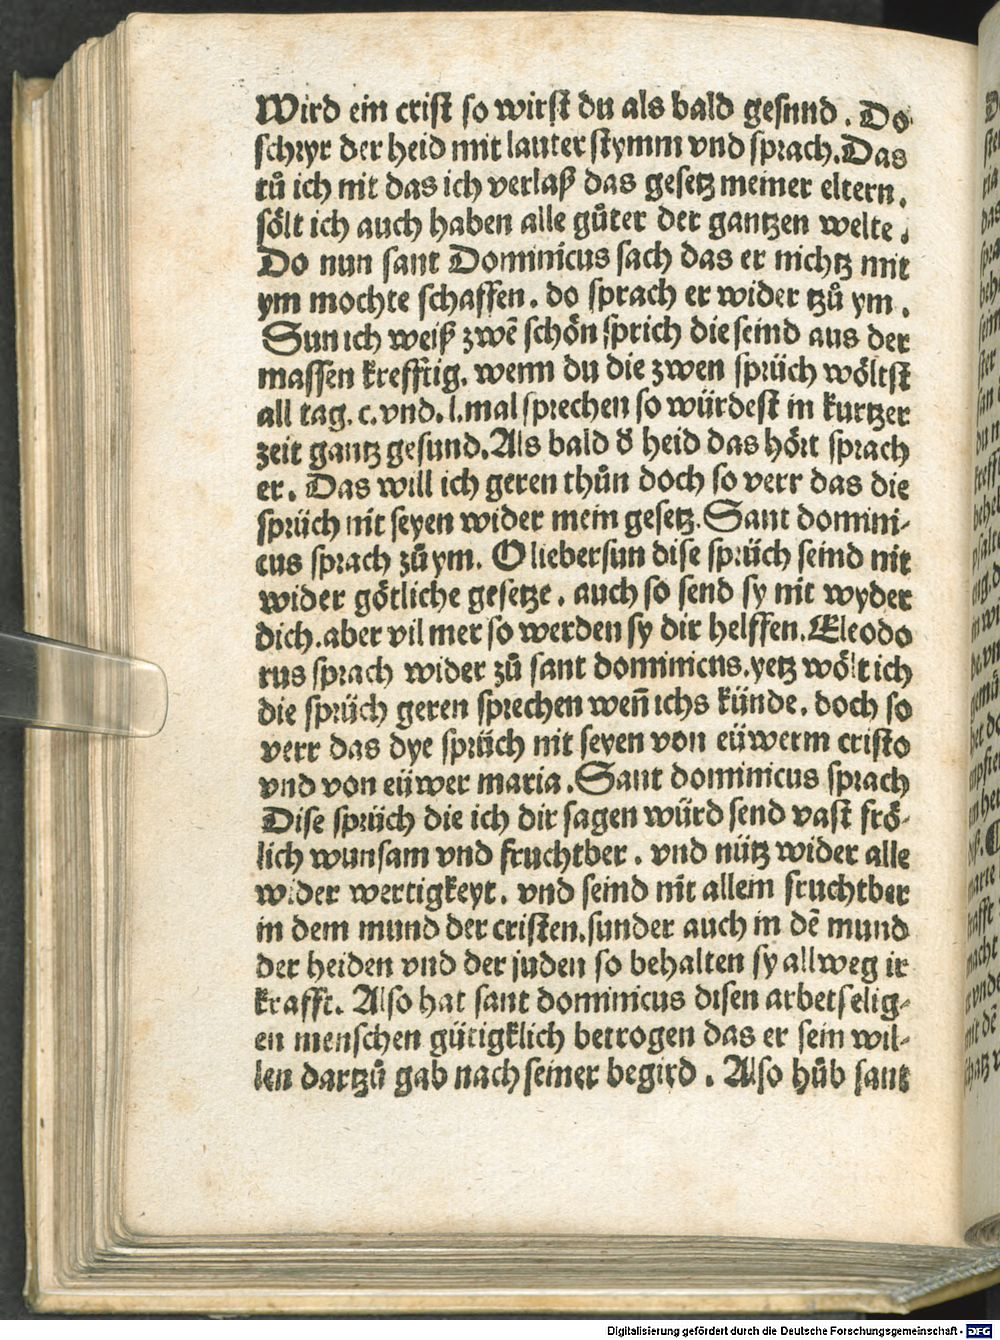 Wird ein crist so wirst du als bald gesund. Do
schryr der heid mit lauter stymm vnd sprach. Das
tů ich nit das ich verlaß das gesetz meiner eltern.
sölt ich auch haben alle gůter der gantzen welte.
Do nun sant Dominicus sach das er nichtz mit
ym mochte schaffen. do sprach er wider tzů ym.
Sun ich weiß zwē schön sprich die seind aus der
massen krefftig. wenn du die zwen sprüch wöltst
all tag. c. vnd. l. mal sprechen so würdest in kurtzer
zeit gantz gesund. Als bald d̕ heid das hört sprach
er. Das will ich geren thůn doch so verr das die
sprüch nit seyen wider mein gesetz. Sant domini-
cus sprach zů ym. O lieber sun dise sprüch seind nit
wider götliche gesetze. auch so send sy nit wyder
dich. aber vil mer so werden sy dir helffen. Eleodo
rus sprach wider zů sant dominicus. yetz wölt ich
die sprüch geren sprechen weñ ichs künde. doch so
verr das dye sprüch nit seyen von eüwerm cristo
vnd von eüwer maria. Sant dominicus sprach
Dise sprüch die ich dir sagen würd send vast frö-
lich wunsam vnd fruchtber. vnd nütz wider alle
wider wertigkeyt. vnd seind nit allein fruchtber
in dem mund der cristen. sunder auch in dē mund
der heiden vnd der juden so behalten sy allweg ir
krafft. Also hat sant dominicus disen arbetselig-
en menschen gütigklich betrogen das er sein wil-
len dartzů gab nach seiner begird. Also hůb sant
Digitalisierung gefördert durch die Deutsche Forschungsgemeinschaft - DFG